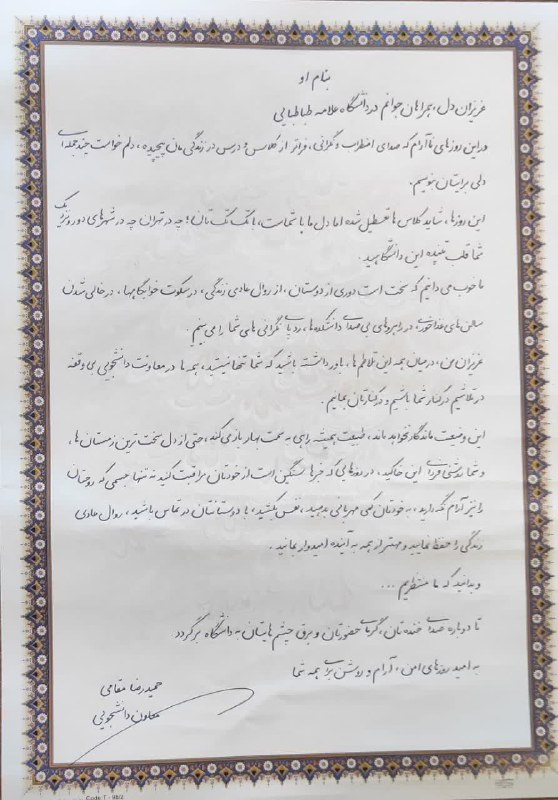 بنام او
عزیزان دل، همراهان جوانم در دانشگاه علامه طباطبایی
در این روزهای ناآرام که صدای اضطراب و نگرانی، فراتر از کلاس و درس در زندگی مان پیچیده، دلم خواست چند جمله‌ای
دلی برایتان بنویسم.
این روزها، شاید کلاس ها تعطیل شده اما دل ما با شماست، با تک تک تان؛ چه در تهران چه در شهرهای دور و نزدیک
شما قلب تپنده این دانشگاهید.
ما خوب می دانیم که سخت است دوری از دوستان، از روال عادی زندگی، در سکوت خوابگاهها، در خالی شدن
سالن های غذاخوری، در راهروهای بی صدای دانشکده ها، ردپای نگرانی های شما را می بینم.
عزیزان من، در میان همه این تلاطم ها، باور داشته باشید که شما تنها نیستید، همه ما در معاونت دانشجویی بی وقفه
در تلاشیم در کنار شما باشیم و در کنارتان بمانیم.
این وضعیت ماندگار نخواهد ماند، طبیعت همیشه راهی به سمت بهار باز می کند، حتی از دل سخت ترین زمستان ها،
و شما روشنی فردای این خاکید، در روزهایی که خبرها سنگین است از خودتان مراقبت کنید نه تنها جسمی که روحتان
را نیز آرام نگه دارید، به خودتان کمی مهربانی بدهید، نفس بکشید، با دوستانتان در تماس باشید، روال عادی
زندگی را حفظ نمایید و مهمتر از همه به آینده امیدوار بمانید.
و بدانید که ما منتظریم ...
تا دوباره صدای خنده تان، گرمای حضورتان و برق چشم هایتان به دانشگاه برگردد
به امید روزهای امن، آرام و روشن برای همه شما
حمیدرضا مقامی
معاون دانشجویی
Code T - 98/2